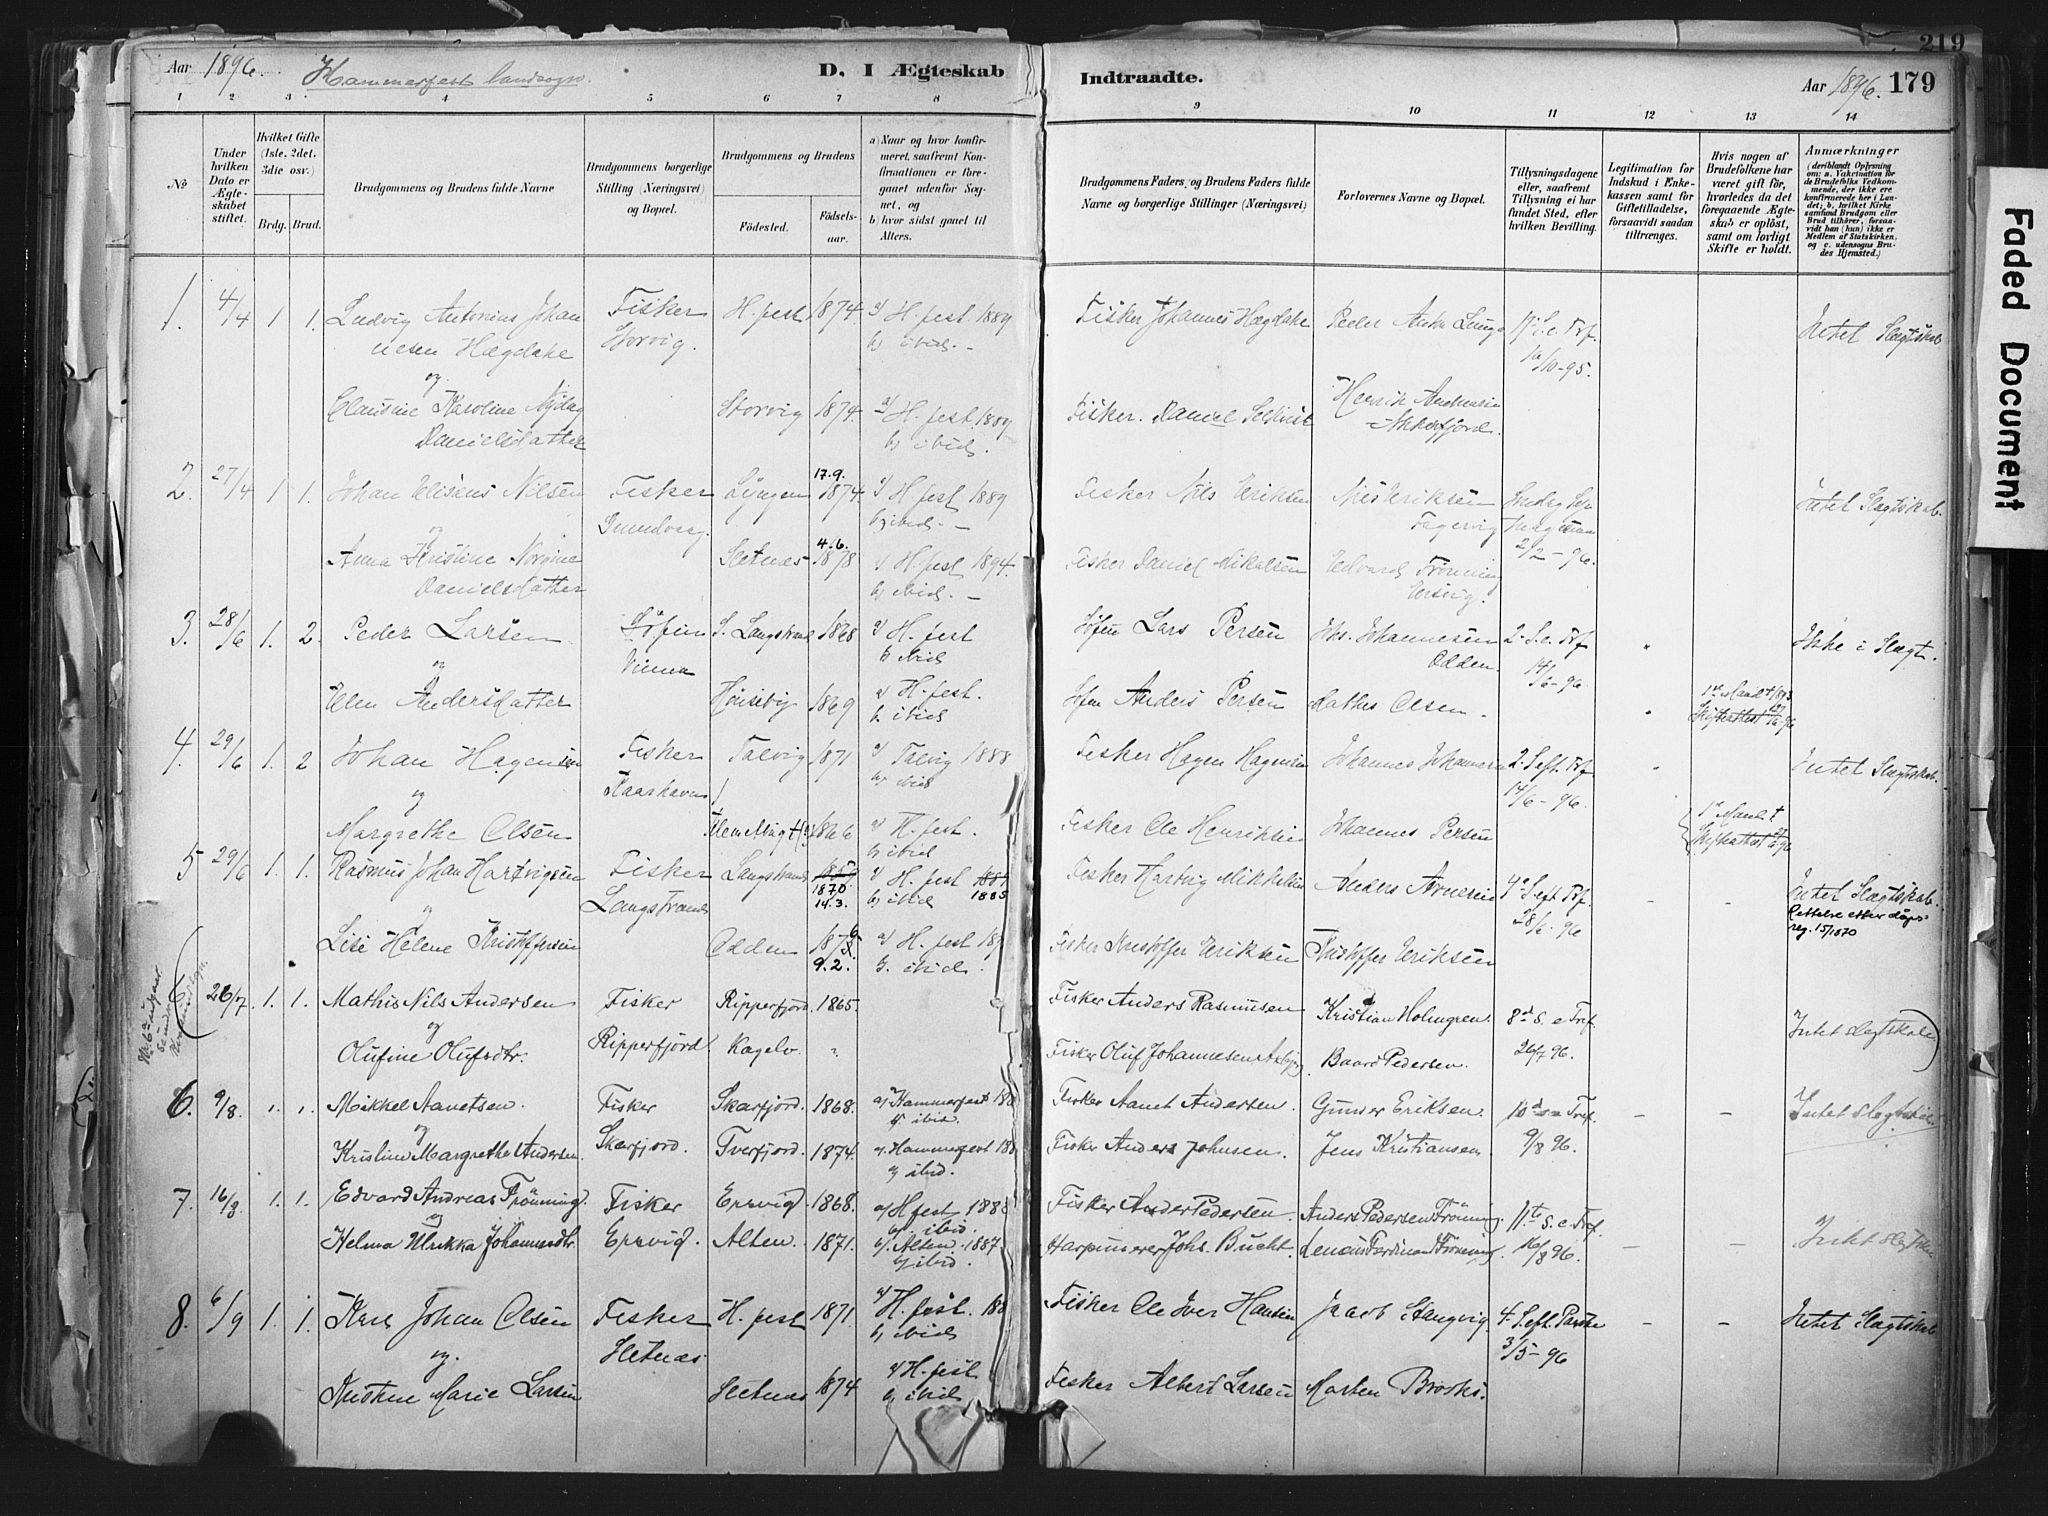 219
Aar 1896. Hammerfest landsogn. D. I Ægteskab Indtraadte. Aar 1896. 179
1 2 3 4 5 6 7 8 9 10 11 12 13 14
No
Under hvilken Dato er Ægteskabet stiftet.
Hvilket Gifte (1ste, 2det, 3die osv.)
Brdg. Brud.
Brudgommens og Brudens fulde Navne
Brudgommens borgerlige Stilling (Næringsvei) og Bopæl.
Brudgommens og Brudens
Fødested. Fødselsaar.
a) Naar og hvor konfirmeret, saafremt Konfirmationen er foregaaet udenfor Sognet, og
b) hvor sidst gaaet til Alters.
Brudgommens Faders og Brudens Faders fulde Navne og borgerlige Stillinger (Næringsvei)
Forlovernes Navne og Bopæl.
Tillysningsdagene eller, saafremt Tillysning ei har fundet Sted, efter hvilken Bevilling.
Legitimation for Indskud i Enkekassen samt for Giftetilladelse, forsaavidt saadan tiltrænges.
Hvis nogen af Brudefolkene har været gift før, hvorledes da det foregaaende Ægteskab er opløst, samt om lovligt Skifte er holdt.
Anmærkninger
(deriblandt Oplysning om: a. Vakcination for de Brudefolks Vedkommende, der ikke ere konfirmerede her i Landet; b. hvilket Kirkesamfund Brudgom eller Brud tilhører, forsaavidt han (hun) ikke er Medlem af Statskirken, og c. udensogns Brudes Hjemsted.)
Faded Document
1. 4/4 1 1. Ludvig Antonius Johannesen Hægdahe Fisker Storvig. H.fest 1874 a) H.fest 1889 b) ibid. Fisker Johannes Hægdahe Peder 16/10-95. Intet Slægtskab
og
Clausine Karoline Nydag Danielsdatter Storvig 1874. a) H.fest 1889 b) ibid. Fisker Daniel Henrik Andersen Akkarfjord.
2. 27/4 1 1. Johan Eliseus Nilsen Fisker Lyngen 17.9. 1874 a) H.fest 1889 b) ibid. Fisker Nils Eriksen Nils Eriksen Fagervig 2/2-96 Intet Slægtskab.
og
Anna Kristine Norgine Danielsdatter Sletnæs 4.6. 1878 a) H.fest 1894. b) ibid. Fisker Daniel Mikalsen Edvard Trønning Ersvig.
3. 28/6 1. 2. Peder Larsen S. Langstrand 1868 a) H.fest b) ibid Søfin Lars Persen Johannesen Odden 2. S. e. Trf 14/6-96. Ikke i Slægt.
og
Elen Andersdatter Hønseby 1869 a) H.fest. b. ibid Søfin Anders Persen Mathis Olsen
4. 29/6 1. 2 Johan Hagensen Fisker Talvig 1871 a) Talvig 1888 b) ibid Fisker Hagen Hagensen Johannes Johannesen 2. S. eft. Trf 14/6-96. Intet Slægtskab.
og
Margrethe Olsen 1866 a) H.fest. b) ibid Fisker Ole Henriksen Johannes Persen 1ste Mand †
5 29/6 1. 1. Rasmus Johan Hartvigsen Fisker Langstrand Langstrand 1870 14.3. a) H.fest 1885 b) ibid Fisker Hartvig Mikkelsen Anders 4de S. eft Trf. 28/6-96 Intet Slægtskab.
Rettelse etter dåpsreg. 15/1870
og
Lise Helene Kristoffersen Odden 1876 9.2. a) H.fest b. ibid. Fisker Kristoffer Eriksen Kristoffer Eriksen
6 26/7 1. 1. Mathis Nils Andersen Fisker Ripperfjord. Ripperfjord 1865. Fisker Anders Rasmussen Kristian Holmgren 8de S. e Tref. 26/7 96. Intet slegtskab
og
Olufine Olufsdtr. Kagelv. Fisker Oluf Johannesen Baard Pedersen.
6. 9/8 1. 1. Mikkel Aanetsen. Fisker Skarfjord. Skarfjord. 1868. a/ Hammerfest b/ ibid. Fisker Aanet Andersen. Gunner Eriksen. 10de s e Tref. 9/8 96. Intet slegtskab
og
Kristine Margrethe Andersen. Tverfjord. 1874. a/ Hammerfest b/ ibid. Fisker Anders Johnsen. Jens Kristiansen
7. 16/8 1. 1. Edvard Andreas Trønning. Fisker Ersvid. Ersvid. 1868. a/ Hfest 1883 b/ ibid Fisker Ander Pedersen. Anders Pedersen Trønning 11te s. e Tref. 16/8 96. Intet slegtskab
og
Helma Ulrikka Johannesdtr. Alten. 1871. a/ Alten. 1887. b/ ibid. Harpunerer Johs. Bucht. Ferdinand Trønning
8. 6/9 1. 1. Karl Johan Olsen Fisker Sletnæs H.fest 1871. a) H.fest. b) ibid Fisker Ole Iver Hansen Jacob Stangvig 4. S. eft. Paaske 3/5-96 Intet Slægtskab
og.
Kristine Marie Larsen Sletnæs 1874 a) H.fest b) ibid Fisker Albert Larsen Morten Brochs.